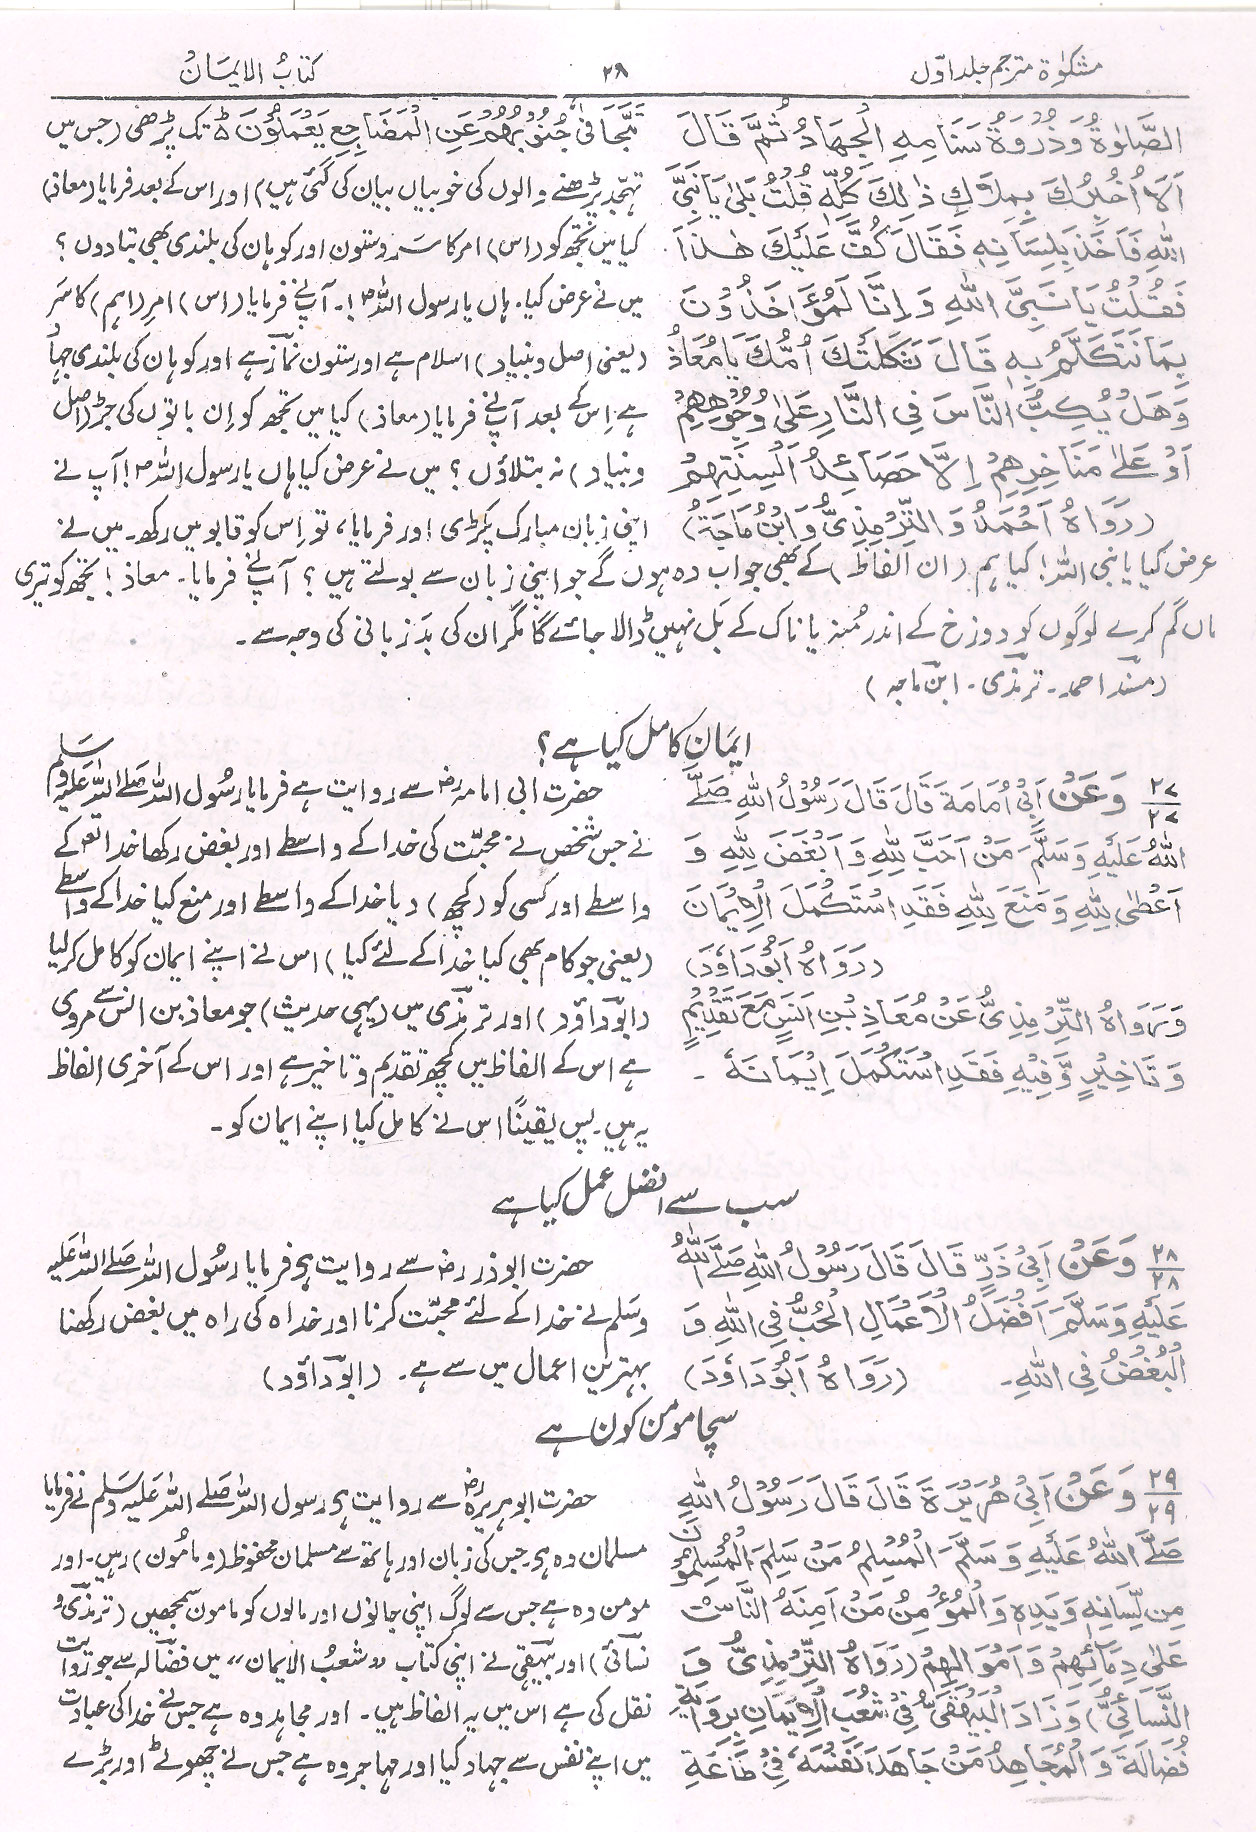 مشکوٰۃ مترجم جلد اوّل
۲۸
کتابُ الایمَان
الصَّلٰوةُ وَذُرْوَةُ سَنَامِهِ الْجِهَادُ ثُمَّ قَالَ
اَلَا اُخْبِرُكَ بِمِلَاكِ ذٰلِكَ كُلِّهٖ قُلْتُ بَلٰى يَا نَبِيَّ
اللّٰهِ فَاَخَذَ بِلِسَانِهٖ فَقَالَ كُفَّ عَلَيْكَ هٰذَا
فَقُلْتُ يَا نَبِيَّ اللّٰهِ وَاِنَّا لَمُؤَاخَذُوْنَ
بِمَا نَتَكَلَّمُ بِهٖ قَالَ ثَكِلَتْكَ اُمُّكَ يَا مُعَاذُ
وَهَلْ يُكِبُّ النَّاسَ فِي النَّارِ عَلٰى وُجُوْهِهِمْ
اَوْ عَلٰى مَنَاخِرِهِمْ اِلَّا حَصَائِدُ اَلْسِنَتِهِمْ
(رَوَاهُ اَحْمَدُ وَالتِّرْمِذِيُّ وَابْنُ مَاجَةَ)
تَتَجَافٰى جُنُوْبُهُمْ عَنِ الْمَضَاجِعِ يَعْمَلُوْنَ ۵ تک پڑھی (جس میں
تہجد پڑھنے والوں کی خوبیاں بیان کی گئی ہیں) اور اس کے بعد فرمایا (معاذ)
کیا میں تجھ کو (اس) امر کا سَر و ستون اور کوہان کی بلندی بھی بتا دوں؟
میں نے عرض کیا۔ ہاں یا رسول اللہ ۴!۔ آپ نے فرمایا (اس) امر (اہم) کا سَر
(یعنی اصل و بنیاد) اسلام ہے اور ستون نماز ہے اور کوہان کی بلندی جہاد
ہے اِس کے بعد آپ نے فرمایا (معاذ) کیا میں تجھ کو اِن باتوں کی جڑ (اصل
و بنیاد) نہ بتلاؤں؟ میں نے عرض کیا ہاں یا رسول اللہ ۴! آپ نے
اپنی زبان مبارک پکڑی اور فرمایا، تو اِس کو قابو میں رکھ۔ میں نے
عرض کیا یا نبی اللہ! کیا ہم (ان الفاظ) کے بھی جواب دہ ہوں گے جو اپنی زبان سے بولتے ہیں؟ آپ نے فرمایا۔ معاذ! تجھ کو تیری
ماں گم کرے لوگوں کو دوزخ کے اندر مُنہ یا ناک کے بَل نہیں ڈالا جائے گا مگر ان کی بد زبانی کی وجہ سے۔
(مسند احمد۔ ترمذی۔ ابن ماجہ)
ایمَان کامل کیا ہے؟
۲۷
۲۷
وَعَنْ اَبِيْ اُمَامَةَ قَالَ قَالَ رَسُوْلُ اللّٰهِ صَلَّى
اللّٰهُ عَلَيْهِ وَسَلَّمَ مَنْ اَحَبَّ لِلّٰهِ وَاَبْغَضَ لِلّٰهِ وَ
اَعْطٰى لِلّٰهِ وَمَنَعَ لِلّٰهِ فَقَدِ اسْتَكْمَلَ الْاِيْمَانَ
(رَوَاهُ اَبُوْدَاوٗدَ)
وَرَوَاهُ التِّرْمِذِيُّ عَنْ مُعَاذِ بْنِ اَنَسٍ مَعَ تَقْدِيْمٍ
وَتَاخِيْرٍ وَّفِيْهِ فَقَدِ اسْتَكْمَلَ اِيْمَانَهٗ ۔
حضرت ابی امامہ رضؓ سے روایت ہے فرمایا رسُول اللہ صَلے اللہ عَلیہ وسلم
نے جس شخص نے محبّت کی خدا کے واسطے اور بغض رکھا خدا تعؔ کے
واسطے اور کسی کو (کچھ) دیا خدا کے واسطے اور منع کیا خدا کے واسطے
(یعنی جو کام بھی کیا خدا کے لئے کیا) اس نے اپنے ایمان کو کامل کر لیا
(ابوداؤد) اور ترمذی میں (یہی حدیث) جو معاذ بن انس سے مروی
ہے اس کے الفاظ میں کچھ تقدیم و تاخیر ہے اور اس کے آخری الفاظ
یہ ہیں۔ پس یقینًا اس نے کامل کیا اپنے ایمان کو۔
سب سے افضل عمل کیا ہے
۲۸
۲۸
وَعَنْ اَبِيْ ذَرٍّ قَالَ قَالَ رَسُوْلُ اللّٰهِ صَلَّى اللّٰهُ
عَلَيْهِ وَسَلَّمَ اَفْضَلُ الْاَعْمَالِ الْحُبُّ فِي اللّٰهِ وَ
الْبُغْضُ فِي اللّٰهِ۔ (رَوَاهُ اَبُوْدَاوٗدَ)
حضرت ابوذر رضؓ سے روایت ہے فرمایا رسُول اللہ صَلے اللہ عَلیہ
وسَلم نے خدا کے لئے محبّت کرنا اور خدا کی راہ میں بغض رکھنا
بہترین اعمال میں سے ہے۔ (ابوداؤد)
سچا مومن کون ہے
۲۹
۲۹
وَعَنْ اَبِيْ هُرَيْرَةَ قَالَ قَالَ رَسُوْلُ اللّٰهِ
صَلَّى اللّٰهُ عَلَيْهِ وَسَلَّمَ الْمُسْلِمُ مَنْ سَلِمَ الْمُسْلِمُوْنَ
مِنْ لِّسَانِهٖ وَيَدِهٖ وَالْمُؤْمِنُ مَنْ اَمِنَهُ النَّاسُ
عَلٰى دِمَائِهِمْ وَاَمْوَالِهِمْ (رَوَاهُ التِّرْمِذِيُّ وَ
النَّسَائِيُّ) وَزَادَ الْبَيْهَقِيُّ فِيْ شُعَبِ الْاِيْمَانِ بِرِوَايَةِ
فُضَالَةَ وَالْمُجَاهِدُ مَنْ جَاهَدَ نَفْسَهٗ فِيْ طَاعَةِ
حضرت ابوہریرہ رضؓ سے روایت ہے رسول اللہ صَلے اللہ عَلیہ وسَلم نے فرمایا
مسلمان وہ ہے جس کی زبان اور ہاتھ سے مسلمان محفوظ (و مامُون) رہیں۔ اور
مومن وہ ہے جس سے لوگ اپنی جانوں اور مالوں کو مامون سمجھیں (ترمذی و
نسائی) اور بیہقی نے اپنی کتاب ”شعبُ الایمان“ میں فضالہ سے جو روایت
نقل کی ہے اس میں یہ الفاظ ہیں۔ اور مجاہد وہ ہے جس نے خدا کی عبادت
میں اپنے نفس سے جہاد کیا اور مہاجر وہ ہے جس نے چھوٹے اور بڑے